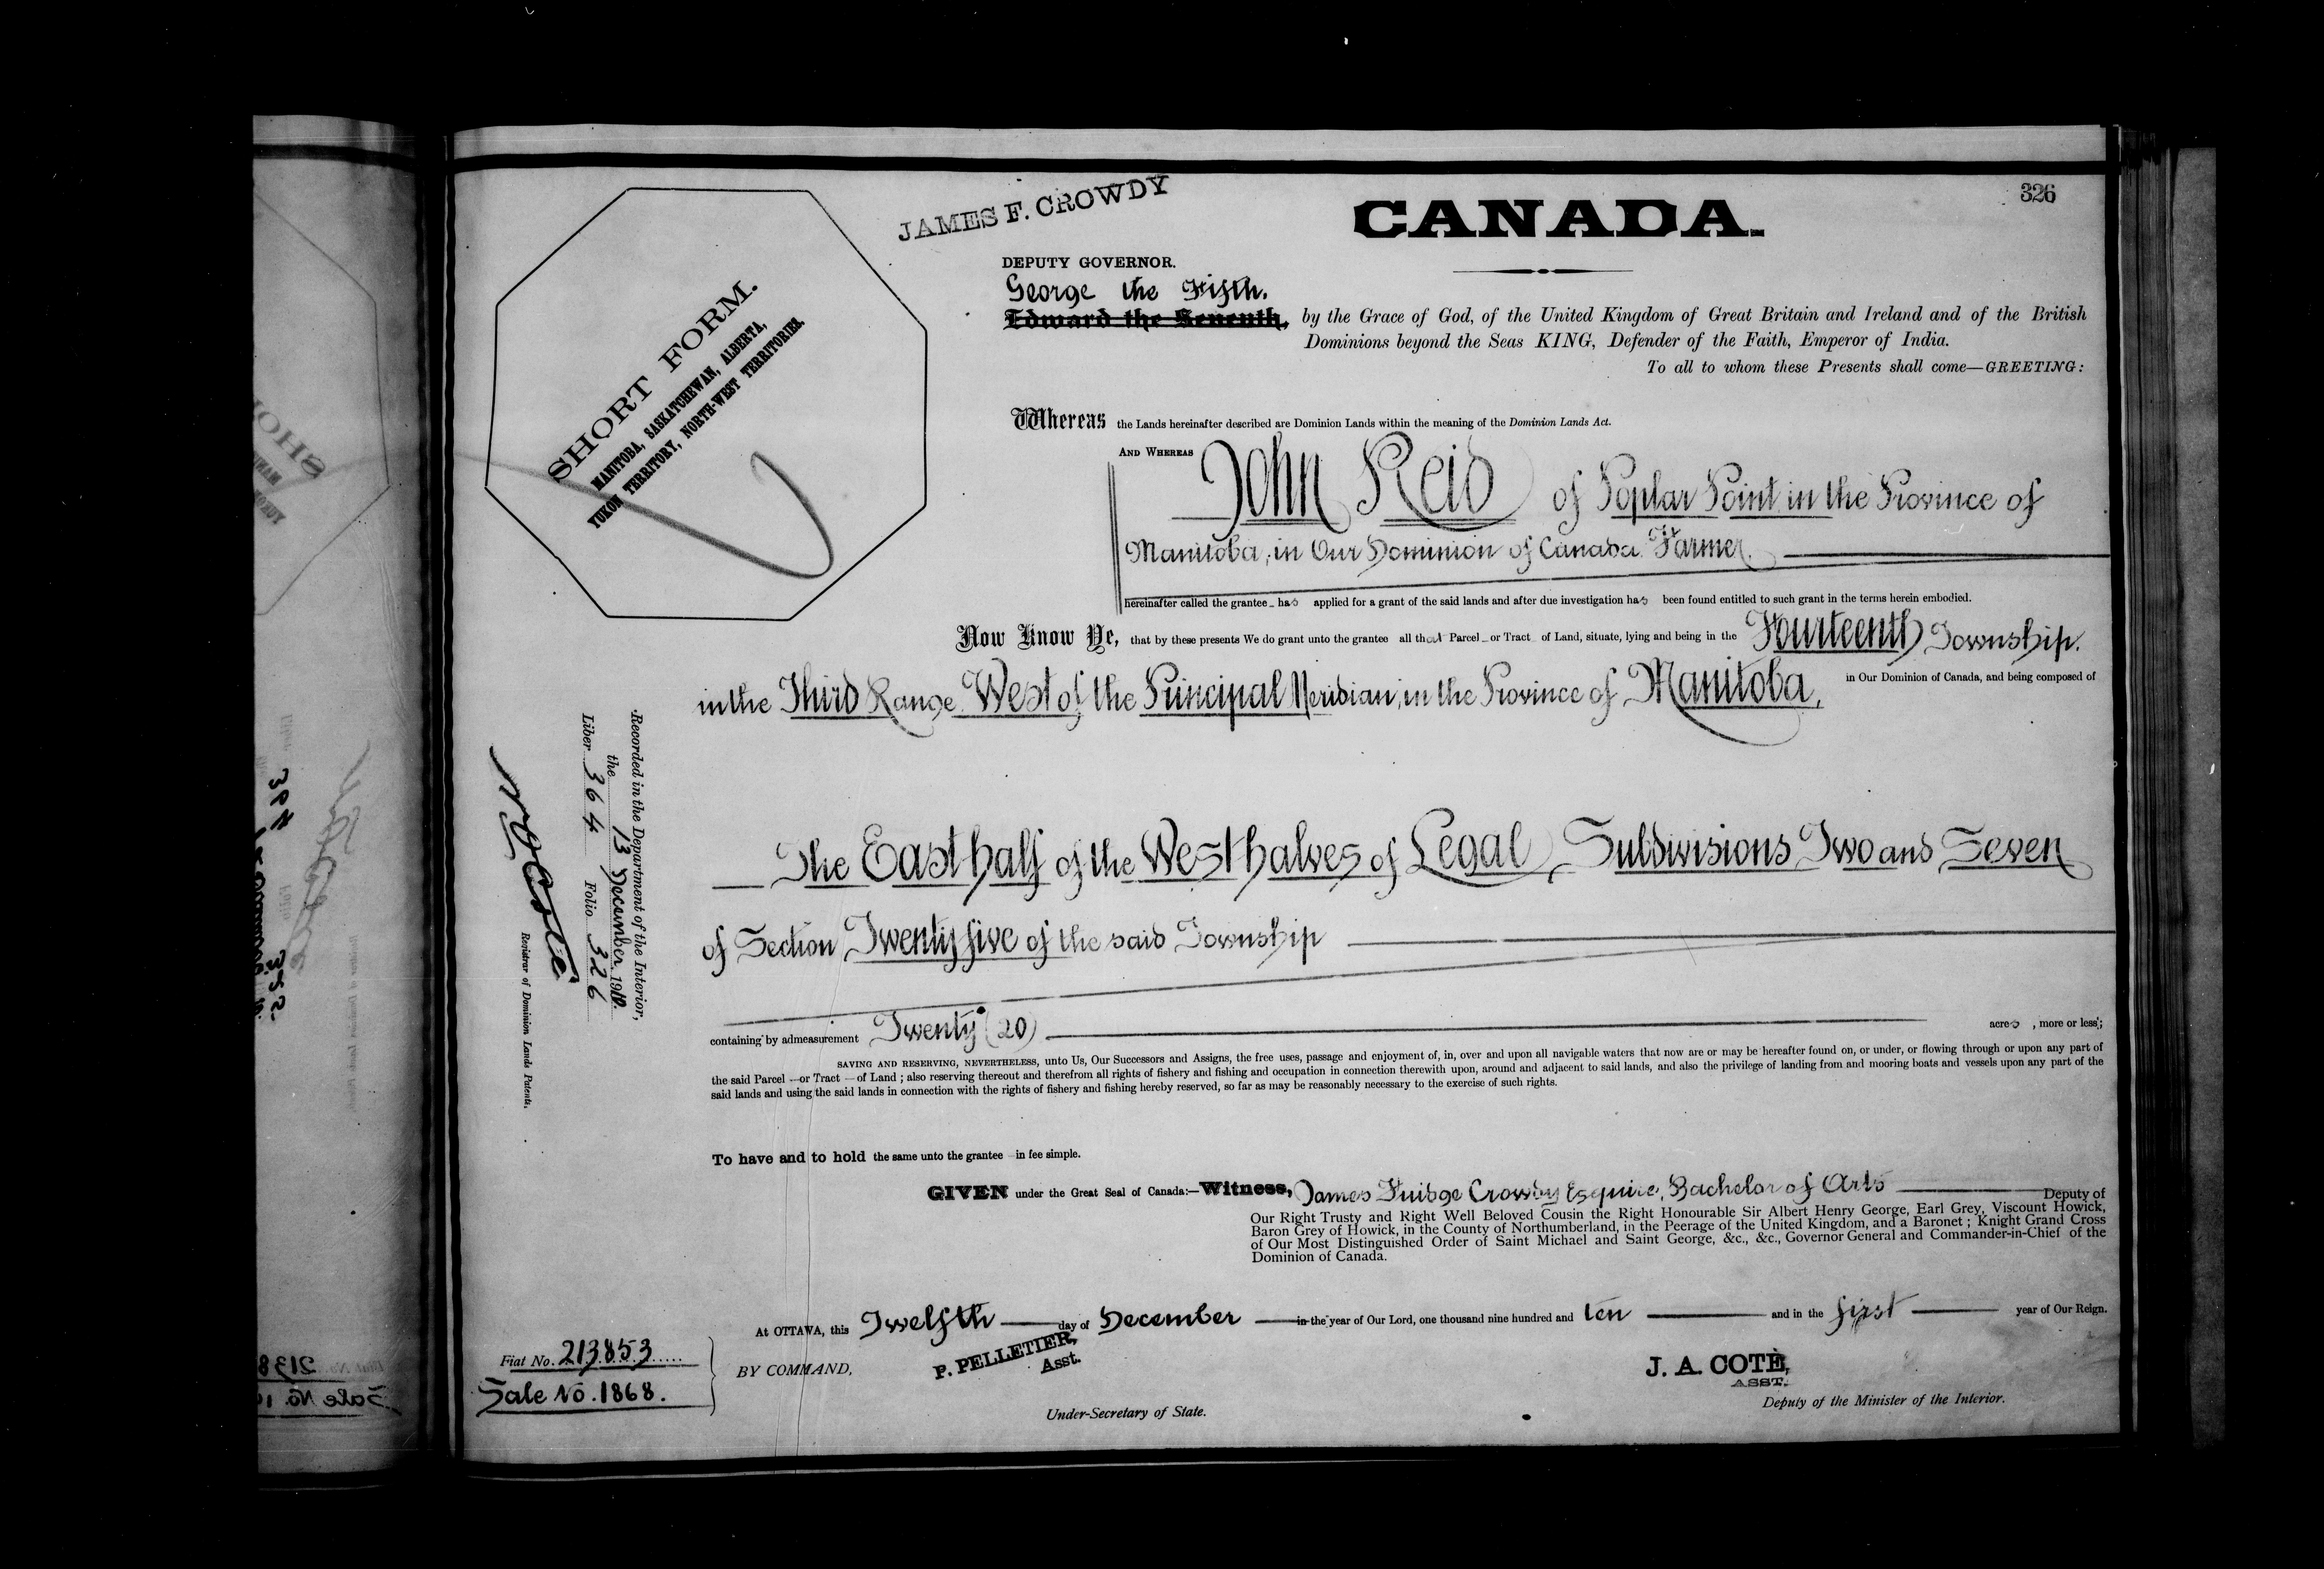 326
JAMES F. CROWDY
CANADA.
DEPUTY GOVERNOR.
George the Fifth.
Edward the Seventh, by the Grace of God, of the United Kingdom of Great Britain and Ireland and of the British
Dominions beyond the Seas KING, Defender of the Faith, Emperor of India.
To all to whom these Presents shall come—GREETING:
SHORT FORM.
MANITOBA, SASKATCHEWAN, ALBERTA,
YUKON TERRITORY, NORTH-WEST TERRITORIES.
Whereas the Lands hereinafter described are Dominion Lands within the meaning of the Dominion Lands Act.
AND WHEREAS John Reid of Poplar Point, in the Province of
Manitoba, in Our Dominion of Canada, Farmer,
hereinafter called the grantee has applied for a grant of the said lands and after due investigation has been found entitled to such grant in the terms herein embodied.
Now Know Ye, that by these presents We do grant unto the grantee all that Parcel or Tract of Land, situate, lying and being in the Fourteenth Township.
in the Third Range West of the Principal Meridian, in the Province of Manitoba, in Our Dominion of Canada, and being composed of
The East half of the West halves of Legal Subdivisions Two and Seven
of Section Twenty five of the said Township
containing by admeasurement Twenty (20) acres, more or less;
SAVING AND RESERVING, NEVERTHELESS, unto Us, Our Successors and Assigns, the free uses, passage and enjoyment of, in, over and upon all navigable waters that now are or may be hereafter found on, or under, or flowing through or upon any part of
the said Parcel or Tract of Land; also reserving thereout and therefrom all rights of fishery and fishing and occupation in connection therewith upon, around and adjacent to said lands, and also the privilege of landing from and mooring boats and vessels upon any part of the
said lands and using the said lands in connection with the rights of fishery and fishing hereby reserved, so far as may be reasonably necessary to the exercise of such rights.
To have and to hold the same unto the grantee in fee simple.
GIVEN under the Great Seal of Canada:—Witness, James Fuidge Crowdy Esquire, Bachelor of Arts Deputy of
Our Right Trusty and Right Well Beloved Cousin the Right Honourable Sir Albert Henry George, Earl Grey, Viscount Howick,
Baron Grey of Howick, in the County of Northumberland, in the Peerage of the United Kingdom, and a Baronet; Knight Grand Cross
of Our Most Distinguished Order of Saint Michael and Saint George, &c., &c., Governor General and Commander-in-Chief of the
Dominion of Canada.
At OTTAWA, this Twelfth day of December in the year of Our Lord, one thousand nine hundred and ten and in the first year of Our Reign.
BY COMMAND,
P. PELLETIER,
Asst.
Under-Secretary of State.
J. A. COTÉ,
ASST.
Deputy of the Minister of the Interior.
Fiat No. 213853
Sale No. 1868.
Recorded in the Department of the Interior,
the 13 December 1910.
Liber 364 Folio 326
Registrar of Dominion Lands Patents.